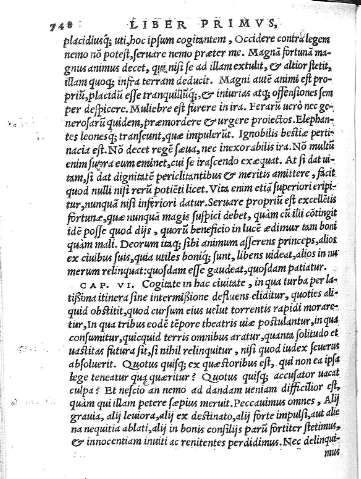 748 LIBER PRIMVS,
placidiusq; uti, hoc ipsum cogitantem, Occidere contra legem
nemo nō potest, seruare nemo præter me. Magnā fortunā ma-
gnus animus decet, qui nisi se ad illam extulit, & altior stetit,
illam quoq; infra terram deducit. Magni autē animi est pro-
priū, placidū esse tranquillūq;, & iniurias atq; offensiones sem
per despicere. Muliebre est furere in ira. Ferarū uerò nec ge-
nerosarū quidem, præmordere & urgere proiectos. Elephan-
tes leonesq; transeunt, quæ impulerūt. Ignobilis bestiæ perti-
nacia est. Nō decet regē sæua, nec inexorabilis ira. Nō multū
enim supra eum eminet, cui se irascendo exæquat. At si dat ui-
tam, si dat dignitatē periclitantibus & meritis amittere, facit
quod nulli nisi rerū potiēti licet. Vita enim etiā superiori eripi-
tur, nunquā nisi inferiori datur. Seruare propriū est excellētis
fortunæ, quæ nunquā magis suspici debet, quàm cū illi cōtingit
idē posse quod dijs, quorū beneficio in lucē ædimur tam boni
quàm mali. Deorum itaq; sibi animum asserens princeps, alios
ex ciuibus suis, quia utiles boniq; sunt, libens uideat, alios in nu
merum relinquat: quosdam esse gaudeat, quosdam patiatur.
CAP. VI. Cogitate in hac ciuitate, in qua turba per la-
tissima itinera sine intermissione defluens eliditur, quoties ali-
quid obstitit, quod cursum eius uelut torrentis rapidi morare-
tur, In qua tribus eodē tēpore theatris uiæ postulantur, in qua
consumitur, quicquid terris omnibus aratur, quanta solitudo et
uastitas futura sit, si nihil relinquitur, nisi quod iudex seuerus
absoluerit. Quotus quisq; ex quæstoribus est, qui non ea ipsa
lege teneatur quā quæritur? Quotus quisq; accusator uacat
culpa? Et nescio an nemo ad dandam ueniam difficilior est,
quàm qui illam petere sæpius meruit. Peccauimus omnes, Alij
grauia, alij leuiora, alij ex destinato, alij forte impulsi, aut alie
na nequitia ablati, alij in bonis consilijs parū fortiter stetimus,
& innocentiam inuiti ac renitentes perdidimus. Nec delinqui-
mus